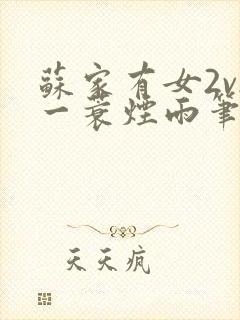 蘇家有女2v
一蓑煙雨筆
天天疯